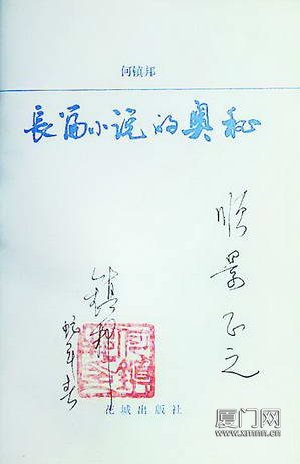 何镇邦
长篇小说的奥秘
顺景正之
镇邦
花城出版社
厦门网
www.xmnn.cn